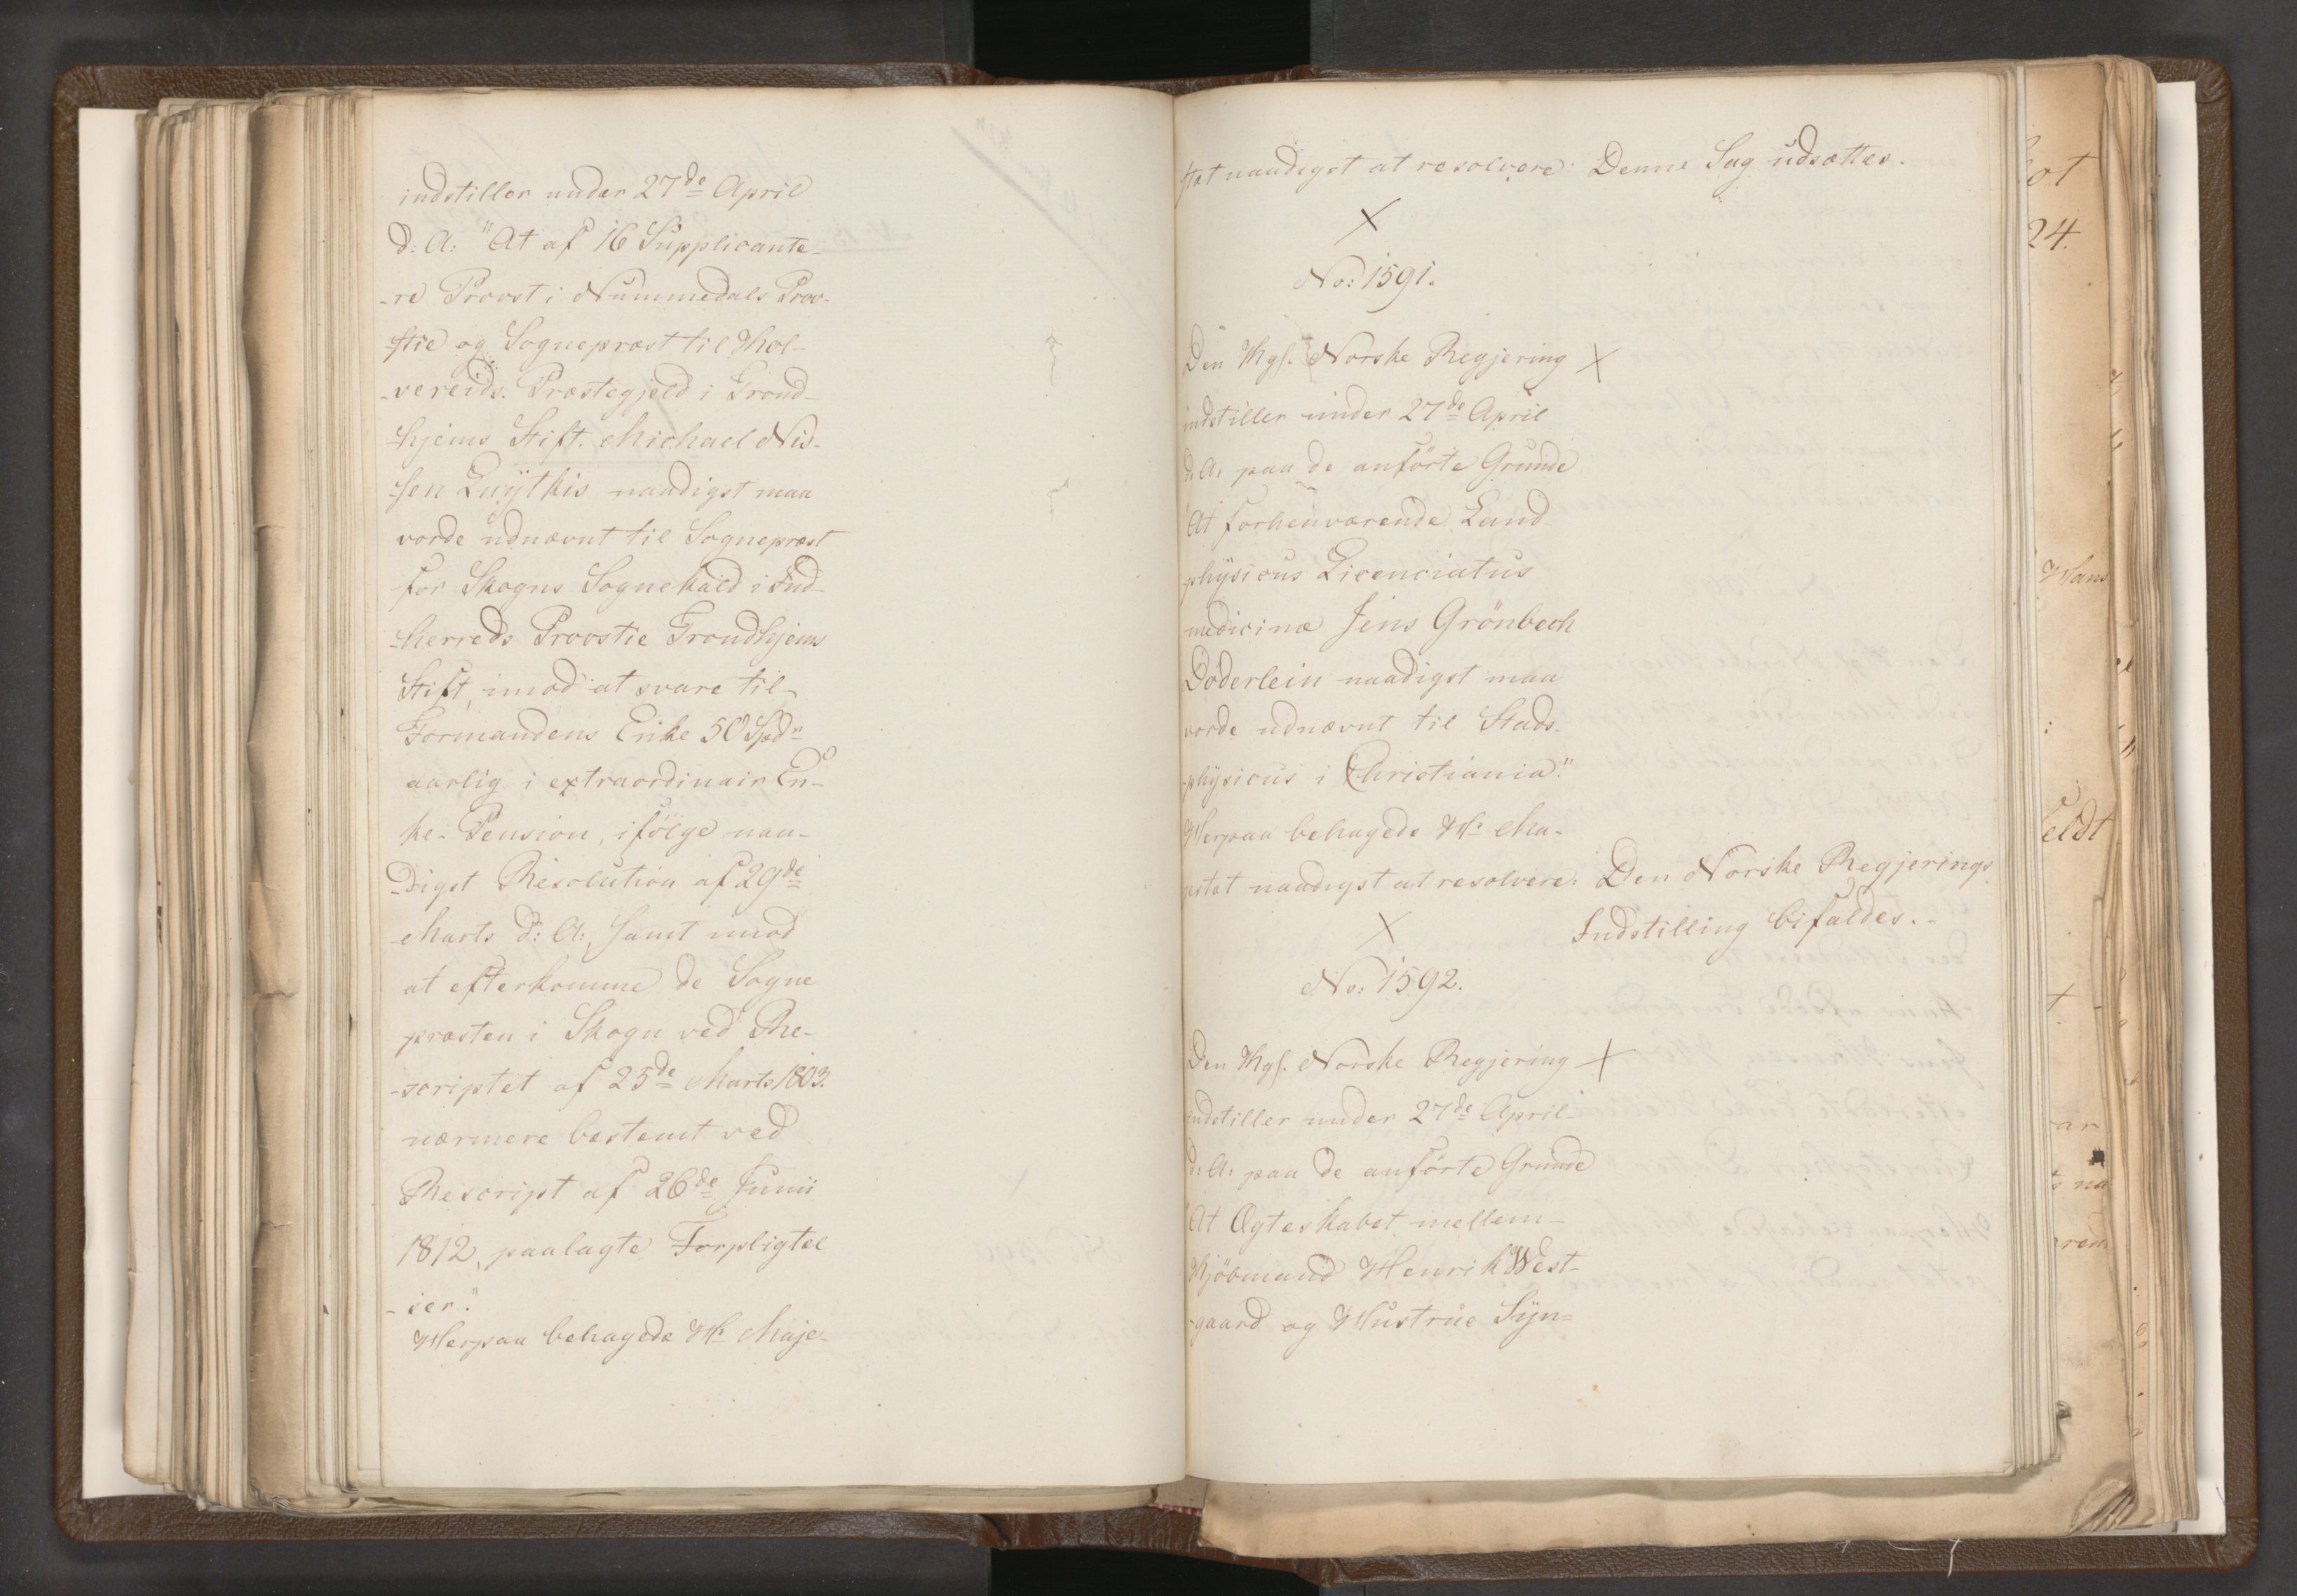 indstiller under 27de April
d: A: "At af 16 Supplicante-
-re Provst i Nummedals Prov-
-stie og Sognepræst til Kol-
-vereids Præstegjeld i Trond-
-hjems Stift. Michael Nis-
-sen Leÿthis naadigst maa
vorde udnævnt til Sognepræst
for Skogns Sognekald i Ind-
-herreds Provstie Trondhjems
Stift, imod at svare til
Formandens Enke 50 Spdr
aarlig i extraordinair En-
ke-Pension, ifölge naa-
-digst Resolution af 29de
Marts d: A:, samt imod
at efterkomme de Sogne
præsten i Skogn ved Re-
-scriptet af 25de Marts 1803.
nærmere bestemt ved
Rescript af 26de Junii
1812, paalagte Forpligtel
-ser."
Herpaa behagede H: Maje-
stæt naadigst at resolvere: Denne Sag udsættes.
No: 1591.
Den Kgs. Norske Regjering
indstiller under 27de April
d: A: paa de anförte Grunde
"At forhenværende Land
physicus Licenciatus
medicinæ Jens Grönbech
Döderlein naadigst maa
vorde udnævnt til Stads-
-physicus i Christiania."
Herpaa behagede H: Ma-
jestæt naadigst at resolvere: Den Norske Regjerings
Indstilling bifaldes.-
No: 1592.
Den Kgs. Norske Regjering
indstiller under 27de April
d: A: paa de anförte Grunde
"At Ægteskabet mellem
Kjöbmand Henrik West-
-gaard og Hustrue Syn=
ot
24.
Hans
eldt
ar